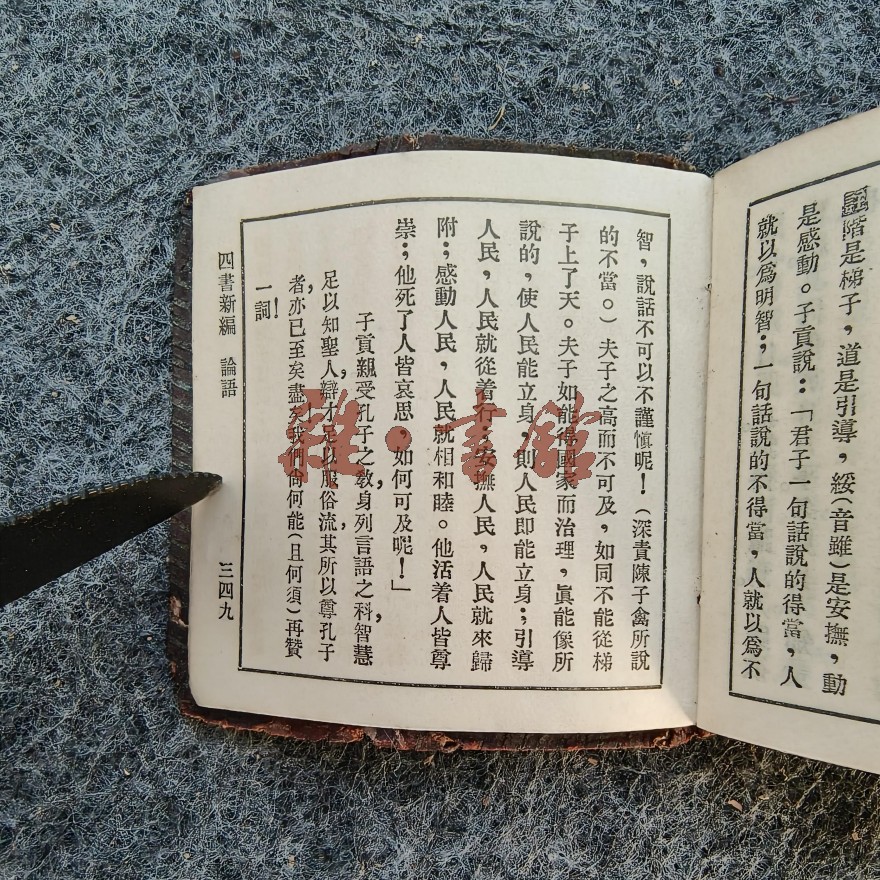 階是梯子，道是引導，綏（音雖）是安撫，動
是感動。子貢說：「君子一句話說的得當，人
就以爲明智；一句話說的不得當，人就以爲不
智，說話不可以不謹愼呢！（深責陳子禽所說
的不當。）夫子之高而不可及，如同不能從梯
子上了天。夫子如能得國家而治理，眞能像所
說的，使人民能立身，則人民即能立身；引導
人民，人民就從着行；安撫人民，人民就來歸
附；感動人民，人民就相和睦。他活着人皆尊
崇；他死了人皆哀思，如何可及呢！」
子貢親受孔子之敎，身列言語之科，智慧
足以知聖人，辯才足以服俗流，其所以尊孔子
者，亦已至矣盡矣，我們尙何能（且何須）再贊
一詞！
四書新編 論語 三四九
雜·書館